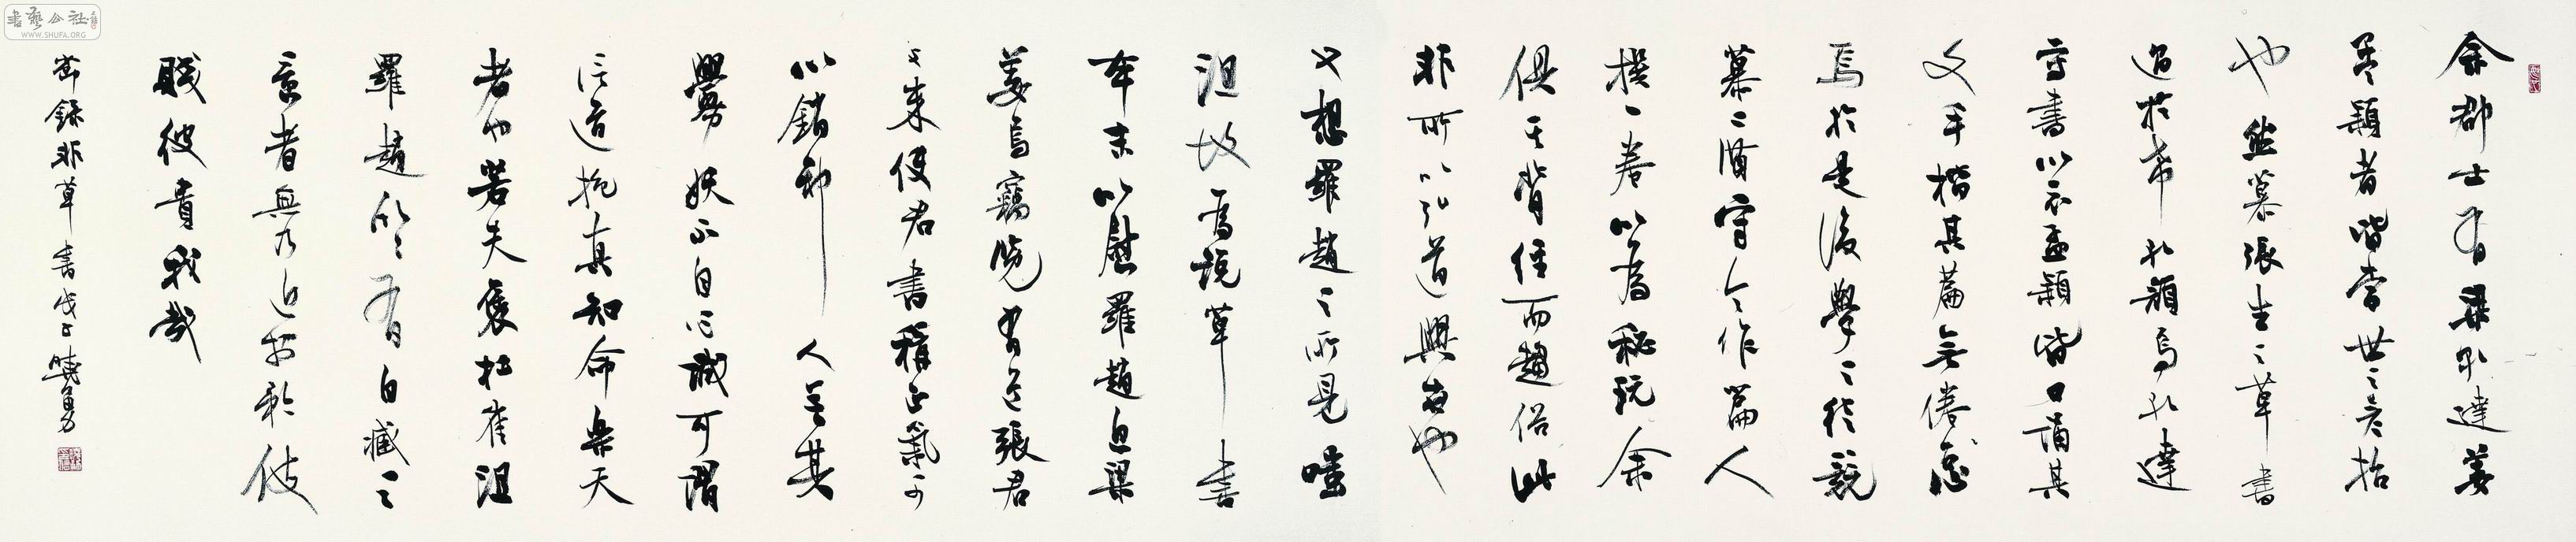 余郡士有梁孔達姜
孟穎者皆當世之彦哲
也然慕張生之草書
過於希孔顏焉孔達
寫書以示孟穎皆口誦其
文手楷其篇無倦怠
焉於是後學之徒競
慕二賢守令作篇人
撰一卷以為秘玩余
俱其背經而趨俗此
非所以弘道興世也
又想羅趙之所見嗤
沮故為說草書
本末以慰羅趙息梁
姜焉竊覽有道張君
与朱使君書稱正氣可
以銷邪人無其
釁妖不自作誠可謂
信道抱真知命樂天
者也若夫褒杜崔沮
羅趙欣欣有自臧之
意者無乃近於矜伎
賤彼貴我哉
節録非草書戊子曉勇
書藝公社
WWW.SHUFA.ORG